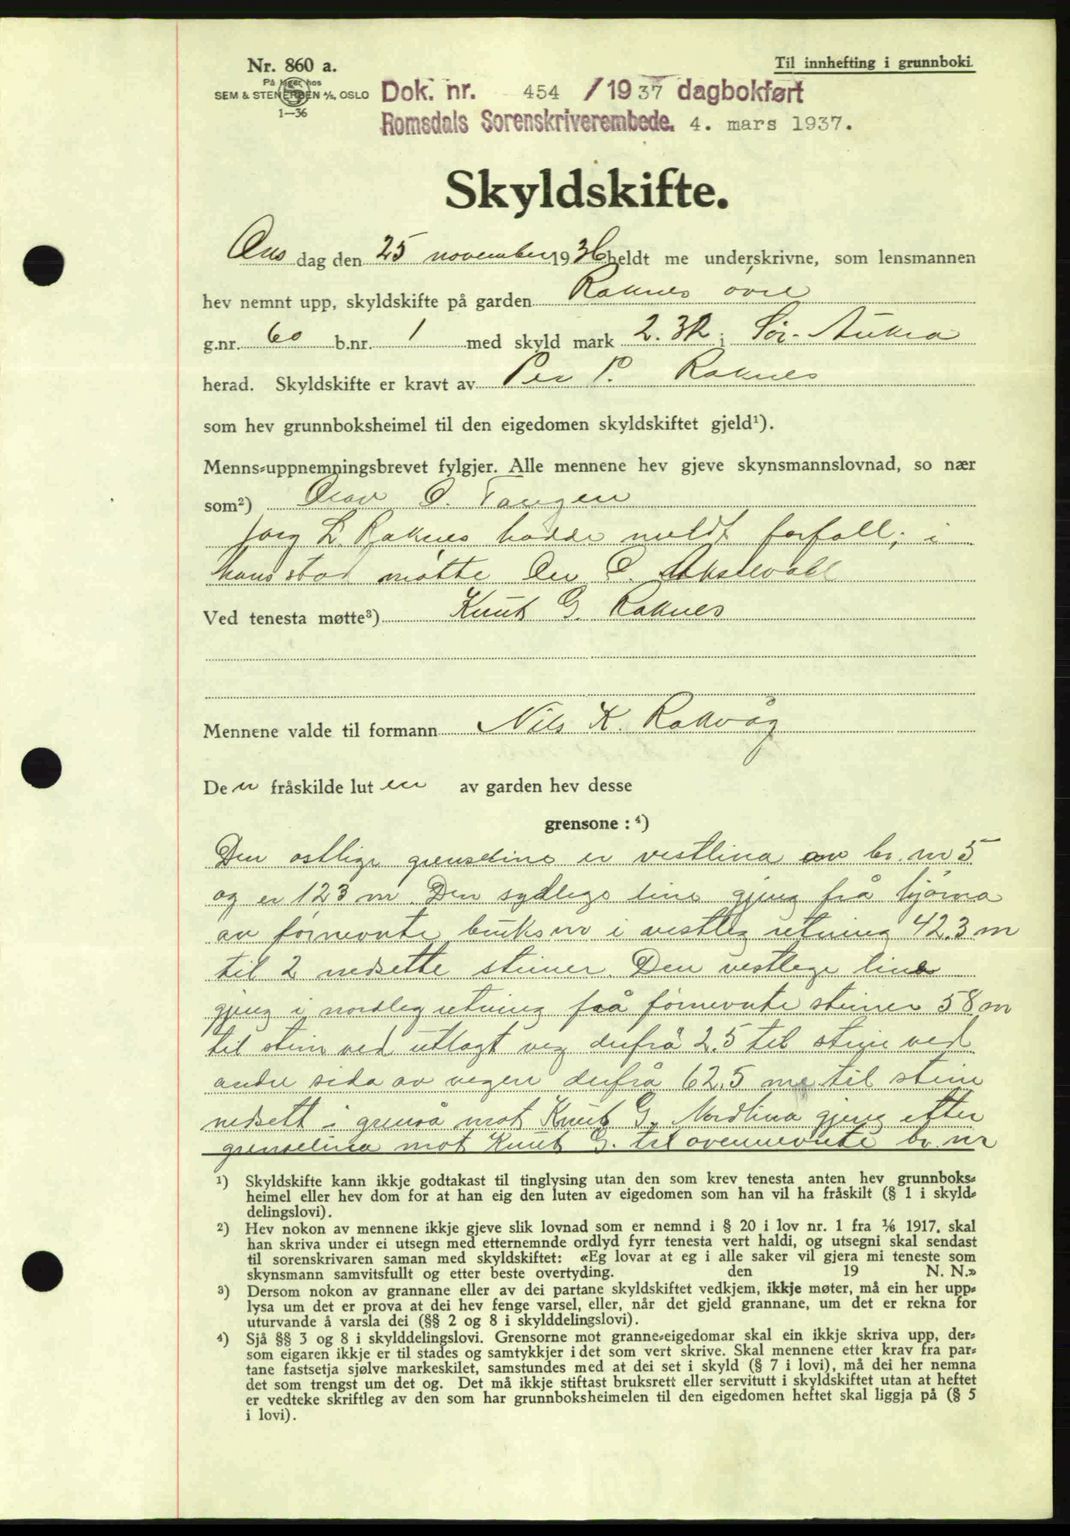 Nr. 860 a.
Til innhefting i grunnboki.
På lager hos
SEM & STENERSEN A/S, OSLO
1—36
Dok. nr. 454 /1937 dagbokført
Romsdals Sorenskriverembede. 4. mars 1937.
Skyldskifte.
Ons dag den 25 november 1936 heldt me underskrivne, som lensmannen
hev nemnt upp, skyldskifte på garden Raknes øvre
g.nr. 60 b.nr. 1 med skyld mark 2.32 i Sør-Aukra
herad. Skyldskifte er kravt av Per P. Raknes
som hev grunnboksheimel til den eigedomen skyldskiftet gjeld¹).
Menns-uppnemningsbrevet fylgjer. Alle mennene hev gjeve skynsmannslovnad, so nær
som²) Olav O. Tangen
L. Raknes hadde meldt forfall; i
hans stad møtte O.
Ved tenesta møtte³) Knut G. Raknes
Mennene valde til formann Nils K. Rakvåg
De n fråskilde lut en av garden hev desse
grensone : ⁴)
Den østlige grenseline er vestlina av br. nr 5
og er 123 m. Den sydlege line gjeng frå hjørna
av førnevnte bruksnr i vestleg retning 42.3 m
til 2 nedsette steiner Den vestlege line
gjeng i nordleg retning frå førnevnte steiner 58 m
til stein ved utlagt veg derfrå 2.5 til stein ved
andre sida av vegen derfrå 62.5 m til stein
nedsett i grensa mot Knut G. Nordlina gjeng etter
grenselina mot Knut G. til ovennevnte br. nr
¹) Skyldskifte kann ikkje godtakast til tinglysing utan den som krev tenesta anten hev grunnboks-
heimel eller hev dom for at han eig den luten av eigedomen som han vil ha fråskilt (§ 1 i skyld-
delingslovi).
²) Hev nokon av mennene ikkje gjeve slik lovnad som er nemnd i § 20 i lov nr. 1 fra 1/6 1917, skal
han skriva under ei utsegn med etternemnde ordlyd fyrr tenesta vert haldi, og utsegni skal sendast
til sorenskrivaren saman med skyldskiftet: «Eg lovar at eg i alle saker vil gjera mi teneste som
skynsmann samvitsfullt og etter beste overtyding. den 19 N. N.»
³) Dersom nokon av grannane eller av dei partane skyldskiftet vedkjem, ikkje møter, må ein her upp-
lysa um det er prova at dei hev fenge varsel, eller, når det gjeld grannane, um det er rekna for
uturvande å varsla dei (§§ 2 og 8 i skylddelingslovi).
⁴) Sjå §§ 3 og 8 i skylddelingslovi. Grensorne mot granne-eigedomar skal ein ikkje skriva upp, der-
som eigaren ikkje er til stades og samtykkjer i det som vert skrive. Skal mennene etter krav fra par-
tane fastsetja sjølve markeskilet, samstundes med at dei set i skyld (§ 7 i lovi), må dei her nemna
det som trengst um det og. Det må ikkje stiftast bruksrett eller servitutt i skyldskiftet utan at heftet
er vedteke skriftleg av den som har grunnboksheimelen til den eigedomen heftet skal liggja på (§ 5
i lovi).